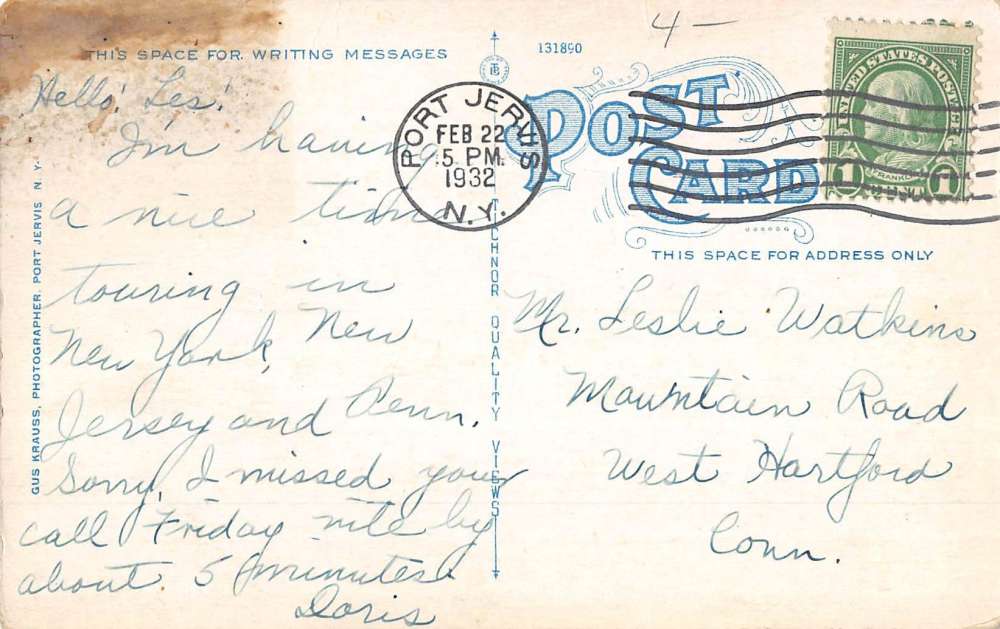 4 —
THIS SPACE FOR WRITING MESSAGES
131890
POST CARD
PORT JERVIS
FEB 22
5 PM
1932
N.Y.
UNITED STATES POSTAGE
FRANKLIN
1 1
THIS SPACE FOR ADDRESS ONLY
Hello Les,
I'm having
a nice time
touring in
New York, New
Jersey and Penn.
Sorry, I missed your
call Friday nite by
about 5 minutes.
Doris
Mr. Leslie Watkins
Mountain Road
West Hartford
Conn.
GUS KRAUSS, PHOTOGRAPHER, PORT JERVIS N. Y.
TECHNOR QUALITY VIEWS